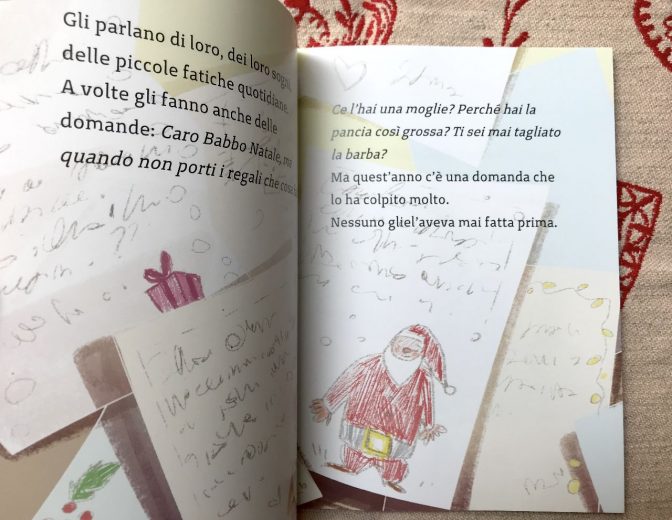 Gli parlano di loro, dei loro sogni,
delle piccole fatiche quotidiane.
A volte gli fanno anche delle
domande: Caro Babbo Natale, ma
quando non porti i regali che cosa
Ce l'hai una moglie? Perché hai la
pancia così grossa? Ti sei mai tagliato
la barba?
Ma quest'anno c'è una domanda che
lo ha colpito molto.
Nessuno gliel'aveva mai fatta prima.